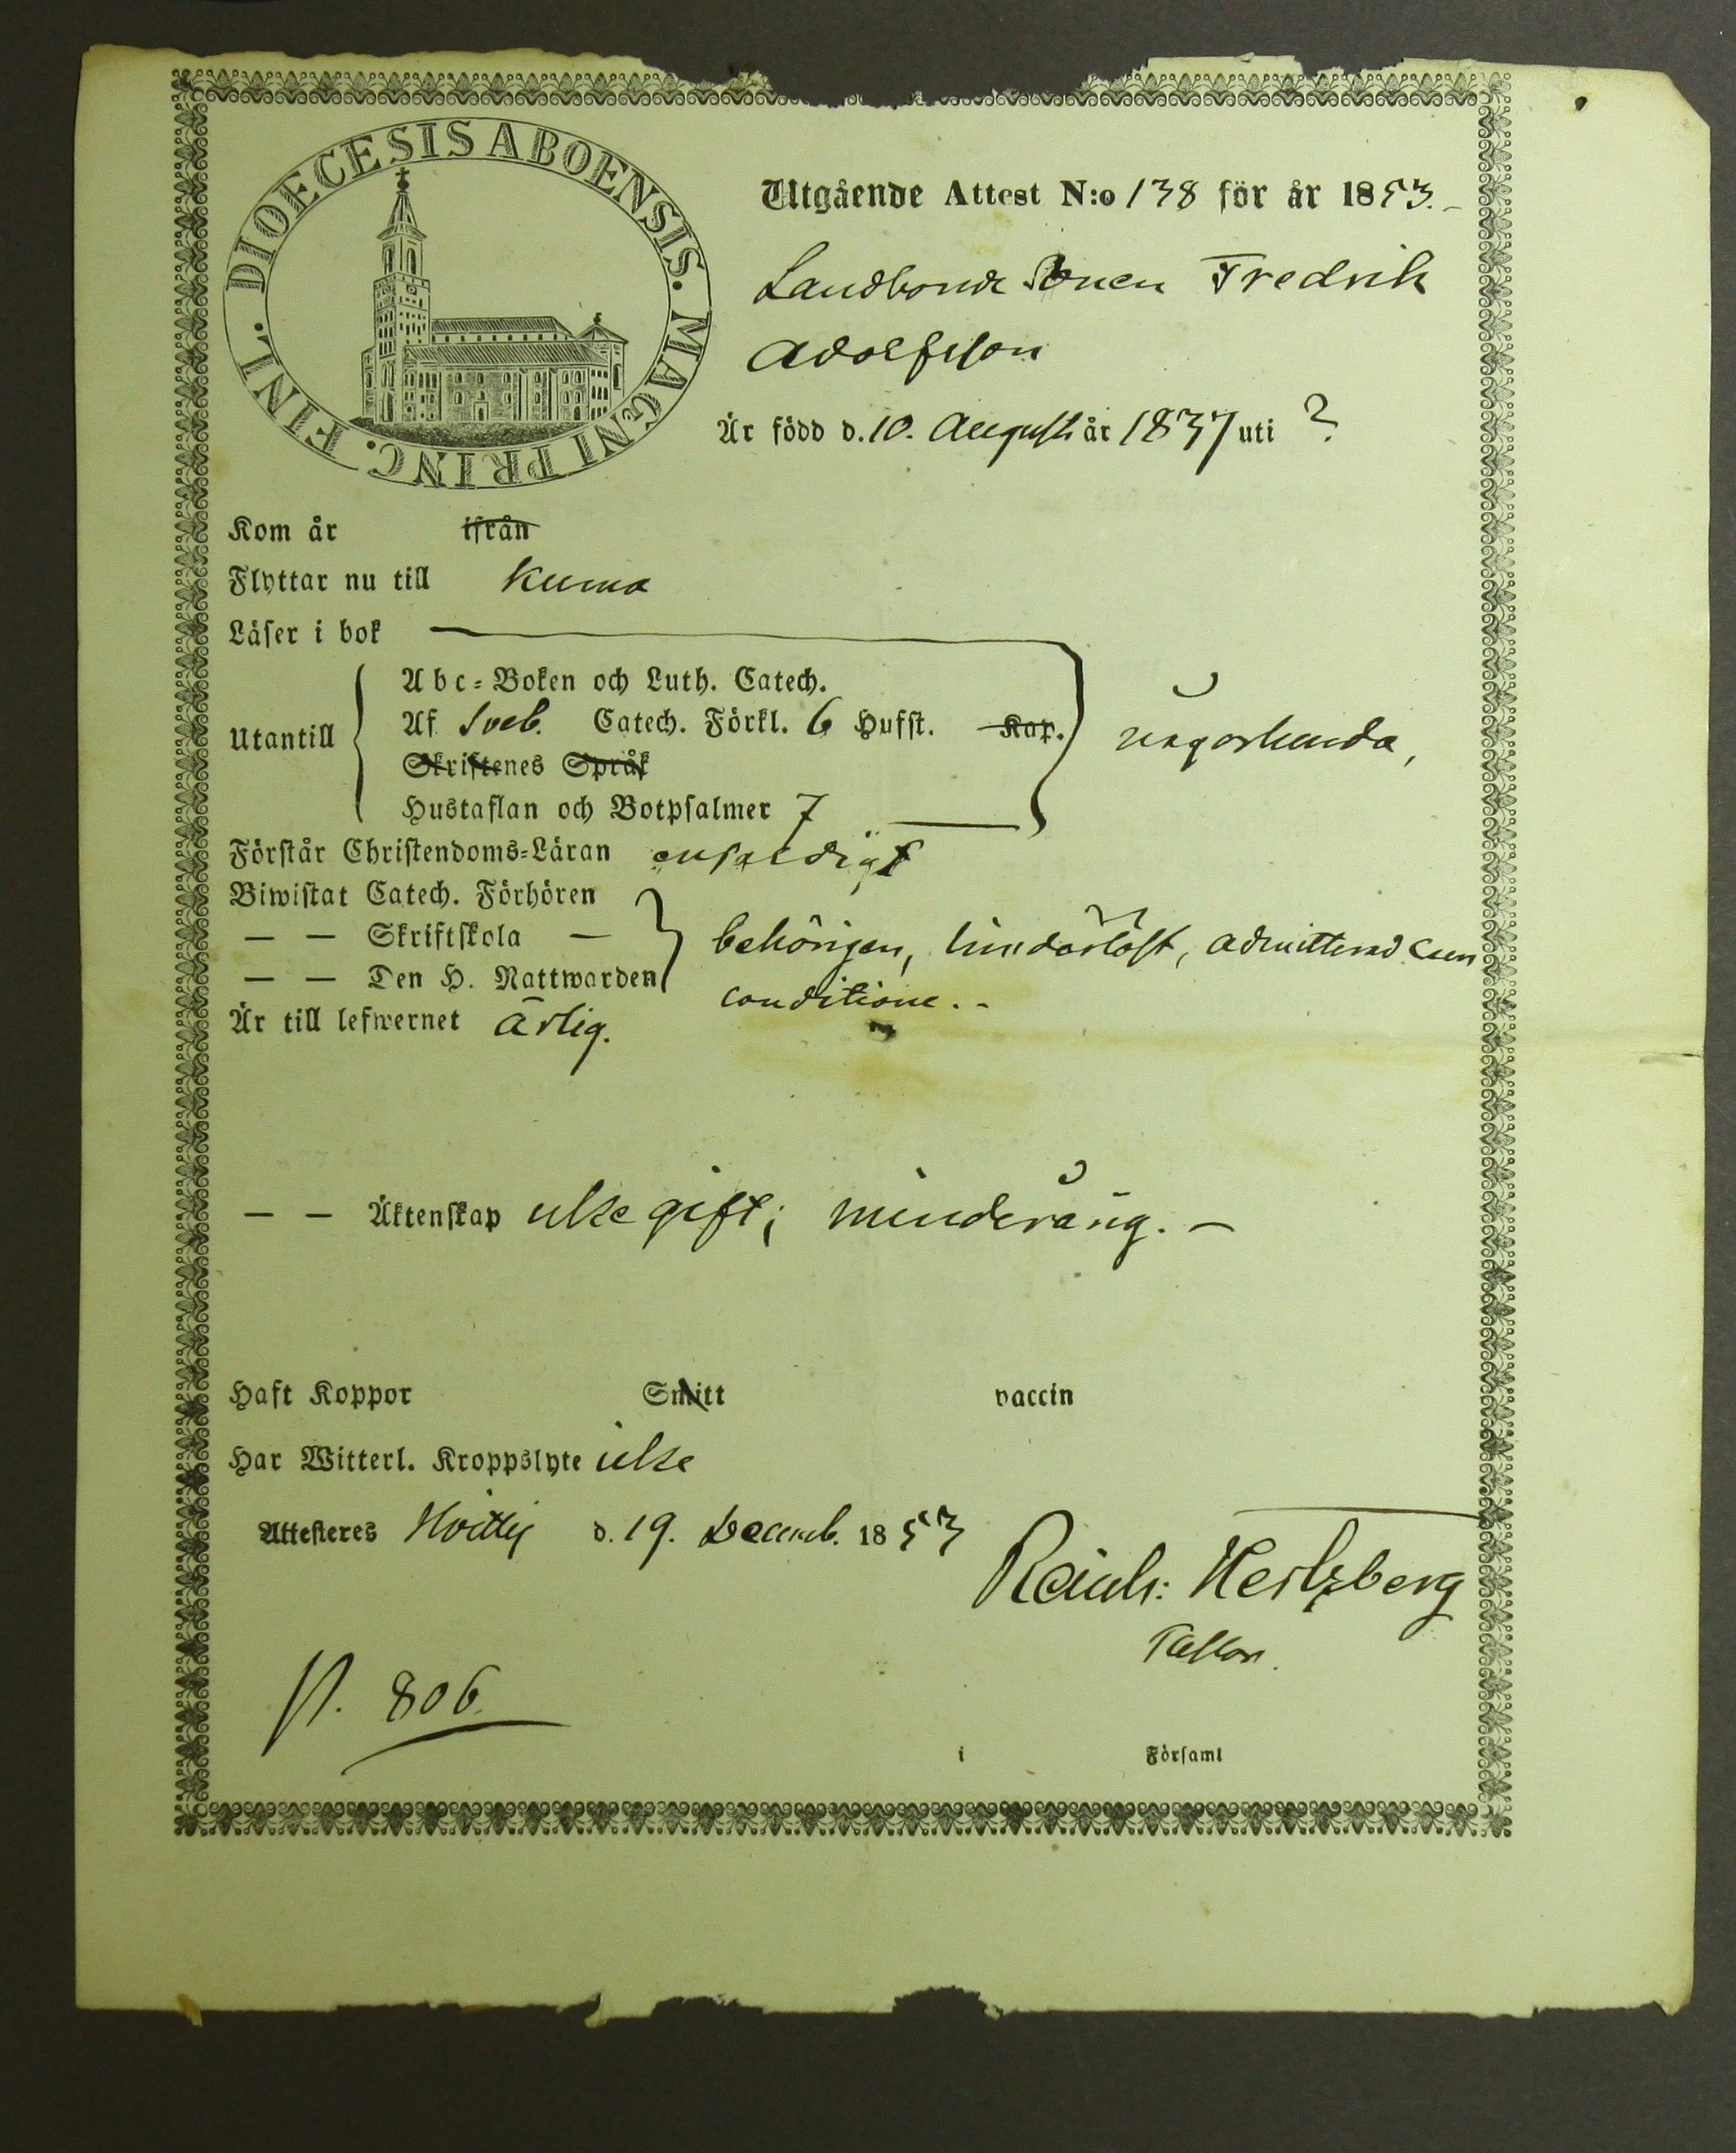 DIOECESIS ABOENSIS. MAGNI PRINC. FINL.
Utgående Attest N:o 138 för år 1853.
Landbonde Sonen Fredrik
Adolfsson
Är född d. 10. Augusti år 1837 uti ?
Kom år ifrån
Flyttar nu till Kumo
Läser i bok
Utantill
Abc-Boken och Luth. Catech.
Af Sveb. Catech. Förkl. 6 Hufst. Kap.
Skriftenes Språk
Hustaflan och Botpsalmer 7
någorlunda,
Förstår Christendoms-Läran enfaldigt
Biwistat Catech. Förhören
— — Skriftskola —
— — Den H. Nattwarden
behörigen, hinderlöst, admitterad cum
conditione. -
Är till lefwernet ärlig.
— — Äktenskap icke gift; minderårig. —
Haft Koppor Smitt vaccin
Har Witterl. Kroppslyte icke
Attesteres Hvittis d. 19. Decemb. 1853
Reinh: Hertzberg
Pastor.
p. 806
i Församl